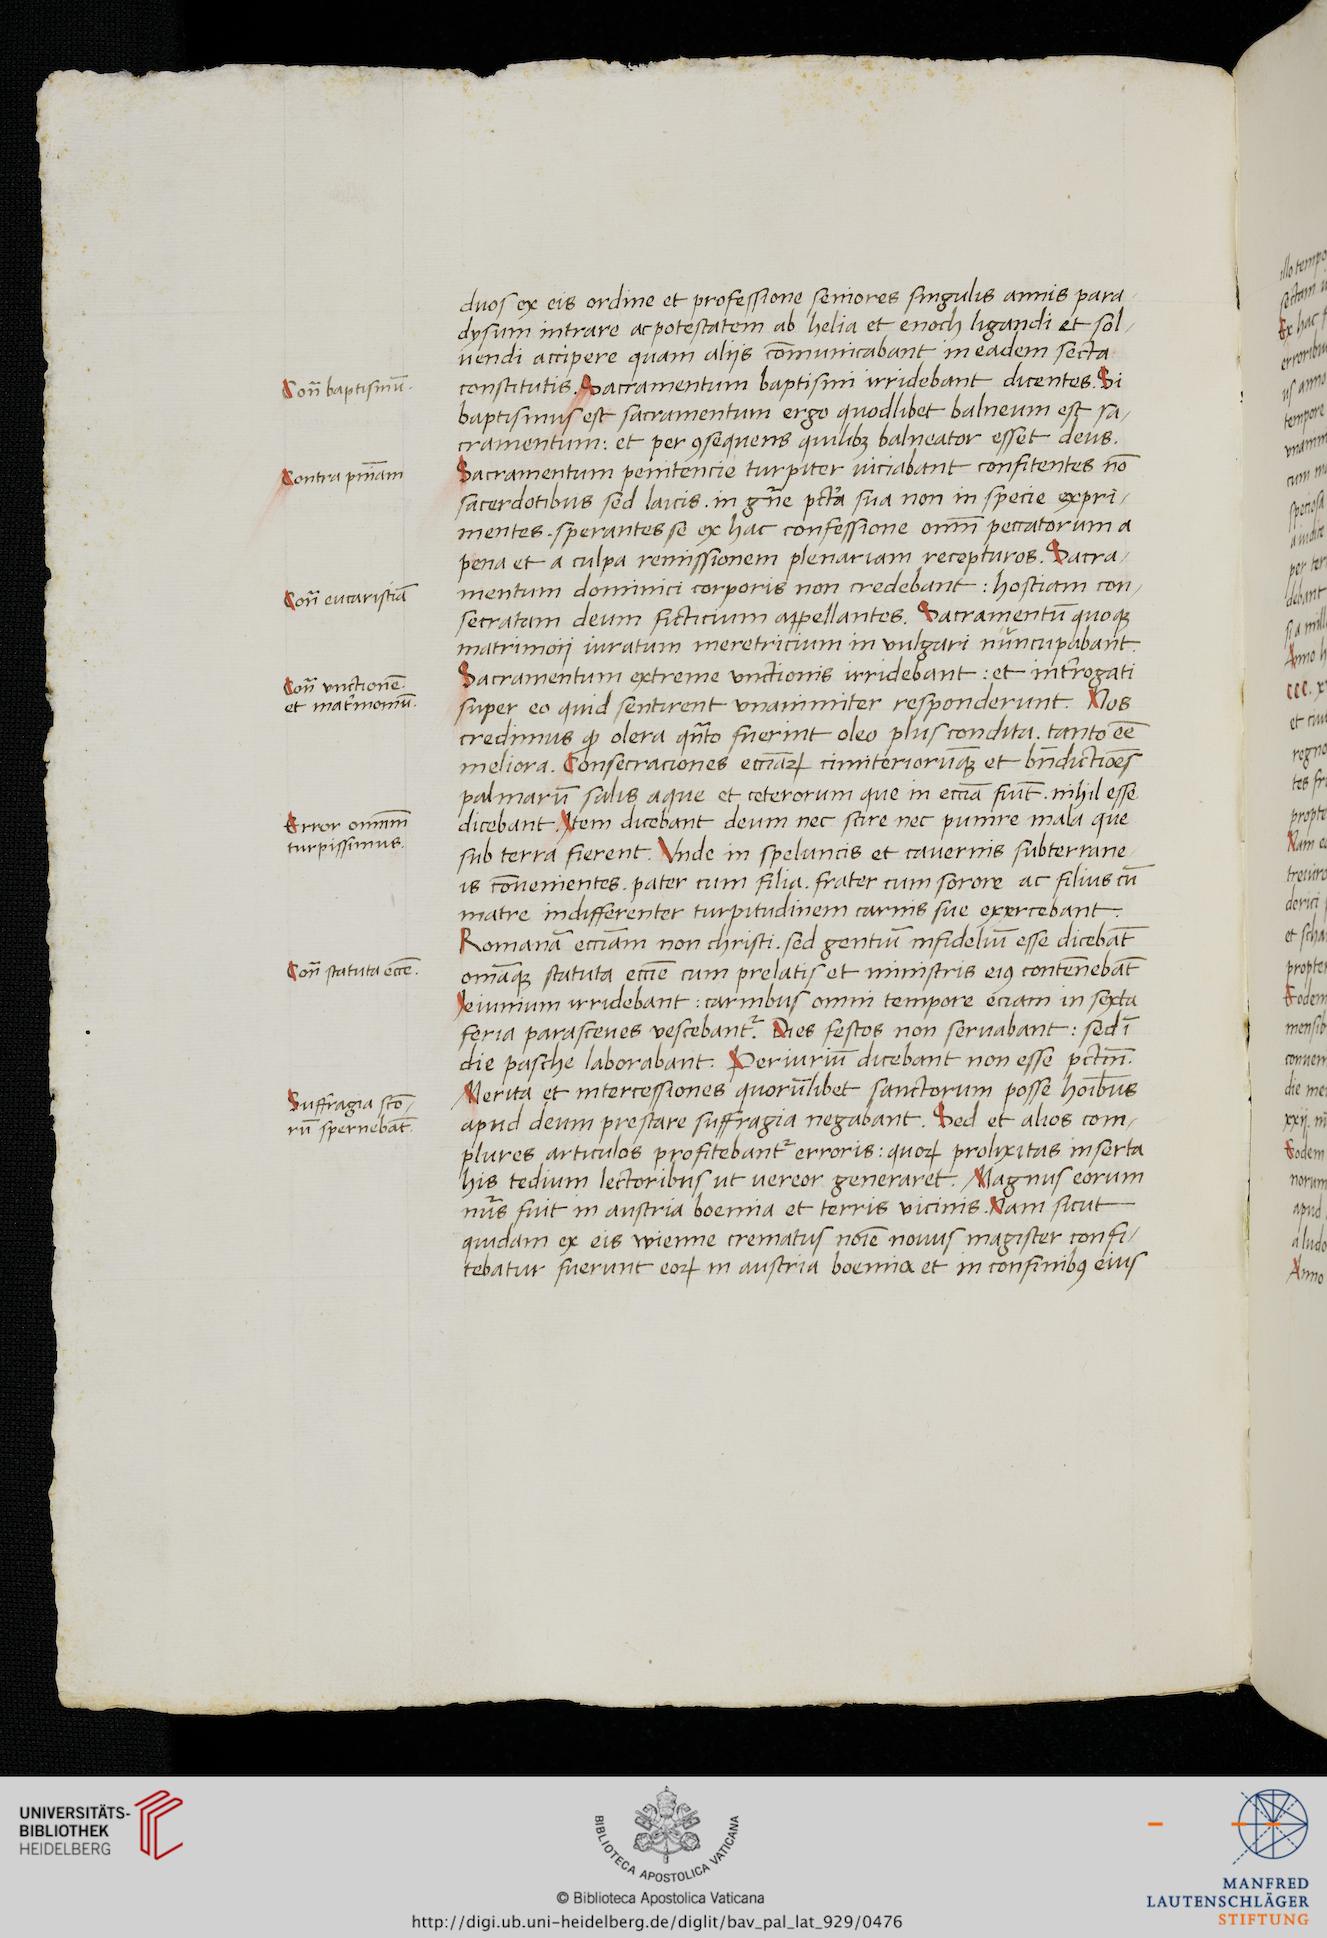 duos ex eis ordine et professione seniores singulis annis para-
dysum intrare ac potestatem ab helia et enoch ligandi et sol-
uendi accipere quam alijs cōmunicabant in eadem secta
constitutis. Sacramentum baptismi irridebant dicentes. Si
Contͣ baptismū.
baptismus est sacramentum ergo quodlibet balneum est sa-
cramentum: et per ꝯsequens quilibꝫ balneator esset deus.
Sacramentum penitencie turpiter viciabant confitentes nō
Contra pnīam
sacerdotibus sed laicis. in gn̄e pctā sua non in specie expri-
mentes. sperantes se ex hac confessione omnī peccatorum a
pena et a culpa remissionem plenariam recepturos. Sacra-
mentum dominici corporis non credebant: hostiam con-
Contͣ eucaristiā
secratam deum ficticium appellantes. Sacramentū quoqꝫ
matrimonij iuratum meretricium in vulgari nūncupabant.
Sacramentum extreme vnctionis irridebant: et intr̄ogati
Contͣ vnctionē.
et matr̄moniū.
super eo quid sentirent vnanimiter responderunt. Nos
credimus ꝙ olera qn̄to fuerint oleo plus condita. tanto eē̄
meliora. Consecraciones eccīaꝝ cimiteriorumqꝫ et bn̄dictiōes
palmarū salis aque et ceterorum que in eccīa fiūt. nihil esse
dicebant. Item dicebant deum nec scire nec punire mala que
Error omnīum
turpissimus.
sub terra fierent. Vnde in speluncis et cauernis subterrane-
is cōnuenientes. pater cum filia. frater cum sorore ac filius cū
matre indifferenter turpitudinem carnis sue exercebant.
Romanā eccīam non christi. sed gentiū infideliū esse dicebāt
omāqꝫ statuta eccīe cum prelatis et ministris eiꝰ contēnebāt
Contͣ statuta eccē.
Ieiunium irridebant: carnibus omni tempore eciam in sexta
feria parasceues vescebantᷣ. Dies festos non seruabant: sed ī
die pasche laborabant. Periuriū dicebant non esse pctm̄.
Merita et intercessiones quorūlibet sanctorum posse hoībus
Suffragia scto-
rū spernebāt.
apud deum prestare suffragia negabant. Sed et alios com-
plures articulos profitebantᷣ erroris: quoꝝ prolixitas inserta
his tedium lectoribus ut vereor generaret. Magnus eorum
nūs fuit in austria boemia et terris vicinis. Nam sicut
quidam ex eis wienne crematus noīe nouus magister confi-
tebatur fuerunt eoꝝ in austria boemia et in confinibꝰ eius
UNIVERSITÄTS-
BIBLIOTHEK
HEIDELBERG
BIBLIOTECA APOSTOLICA VATICANA
© Biblioteca Apostolica Vaticana
http://digi.ub.uni-heidelberg.de/diglit/bav_pal_lat_929/0476
MANFRED
LAUTENSCHLÄGER
STIFTUNG